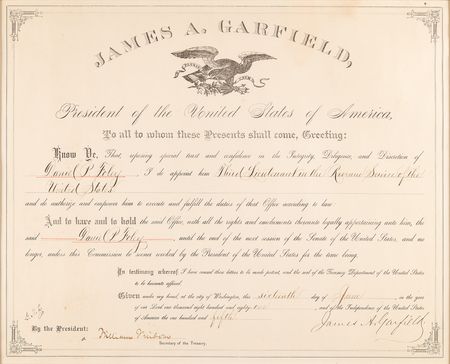 JAMES A. GARFIELD,
President of the United States of America,
To all to whom these Presents shall come, Greeting:
Know Ye, That, reposing special trust and confidence in the Integrity, Diligence, and Discretion of
Daniel P. Foley, I do appoint him Third Lieutenant in the Revenue Service of the
United States
and do authorize and empower him to execute and fulfill the duties of that Office according to law
And to have and to hold the said Office, with all the rights and emoluments thereunto legally appertaining unto him, the
said Daniel P. Foley, until the end of the next session of the Senate of the United States, and no
longer, unless this Commission be sooner revoked by the President of the United States for the time being.
In testimony whereof I have caused these Letters to be made patent, and the seal of the Treasury Department of the United States
to be hereunto affixed.
Given under my hand, at the city of Washington, this sixteenth day of June, in the year
of our Lord one thousand eight hundred and eighty one, and of the Independence of the United States
of America the one hundred and fifth
James A. Garfield
By the President:
William Windom
Secretary of the Treasury.